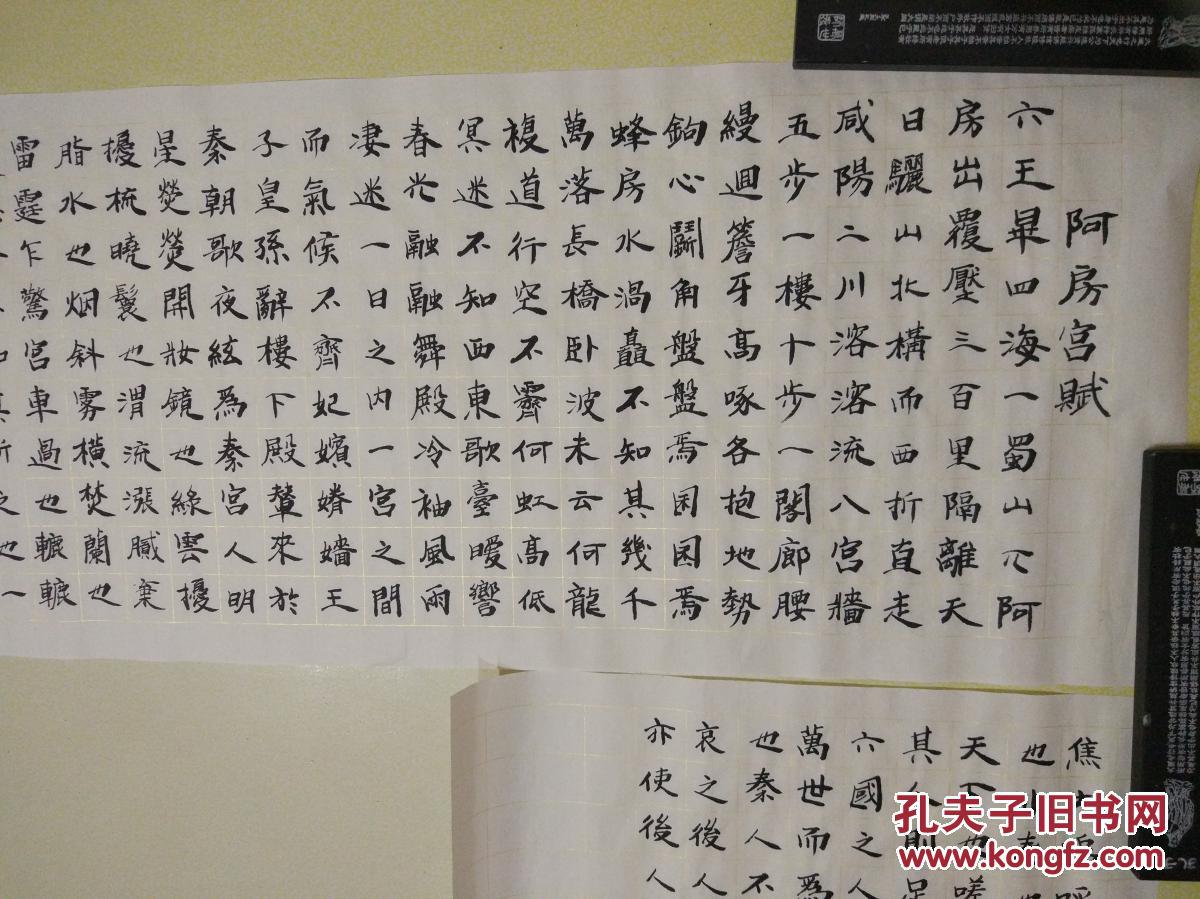 阿房宮賦
六王畢四海一蜀山兀阿
房出覆壓三百里隔離天
日驪山北構而西折直走
咸陽二川溶溶流八宮牆
五步一樓十步一閣廊腰
縵迴簷牙高啄各抱地勢
鉤心鬭角盤盤焉囷囷焉
蜂房水渦矗不知其幾千
萬落長橋卧波未云何龍
複道行空不霽何虹高低
冥迷不知西東歌臺暖響
春光融融舞殿冷袖風雨
凄迷一日之內一宮之間
而氣候不齊妃嬪媵嬙王
子皇孫辭樓下殿輦來於
秦朝歌夜絃爲秦宮人明
星熒熒開妝鏡也綠雲擾
擾梳曉鬟也渭流漲膩棄
脂水也烟斜霧橫焚蘭也
雷霆乍驚宮車過也轆轆
之也一
焦
也
天下也嗟
其人則足
六國之人
萬世而爲
也秦人不
哀之後人
亦使後人
孔夫子旧书网
www.kongfz.com